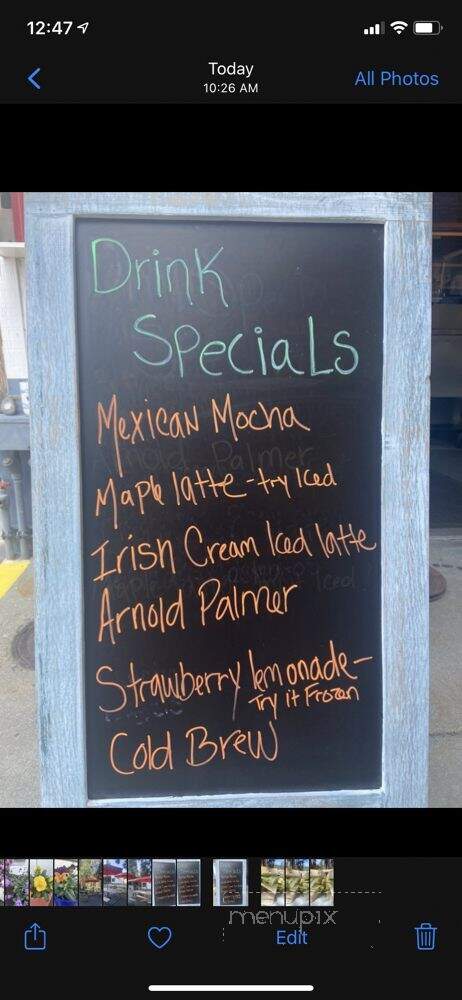 12:47
Today
10:26 AM
All Photos
Drink
Specials
Mexican Mocha
Maple latte - try Iced
Irish Cream Iced latte
Arnold Palmer
Strawberry lemonade -
Try it Frozen
Cold Brew
menupix
Edit